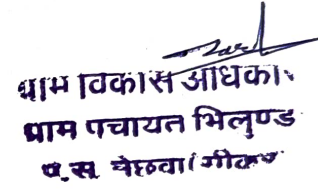 ग्राम विकास अधिकारी
ग्राम पंचायत भिलुण्ड
प.स.